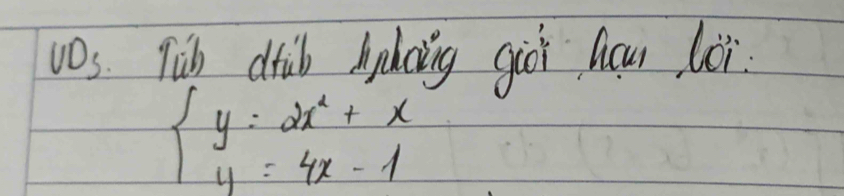 VD3. Tính dtích hphẳng giới hạn bởi:
y = 2x² + x
y = 4x - 1